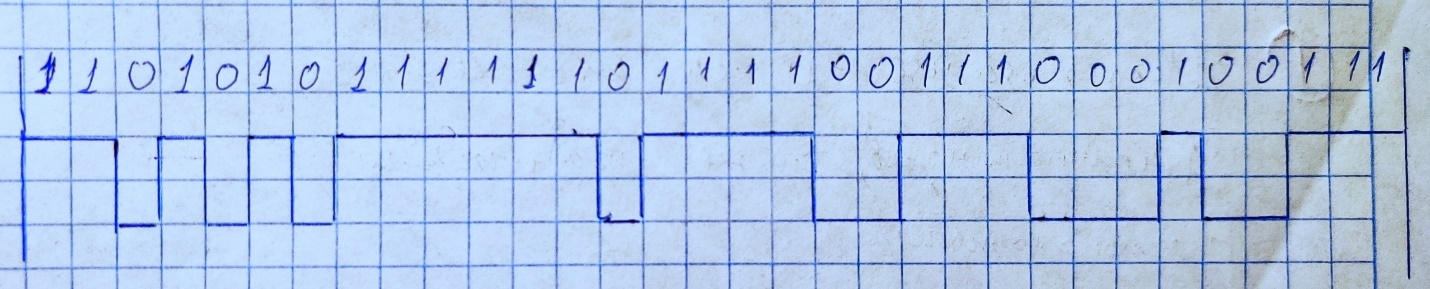 1 1 0 1 0 1 0 1 1 1 1 1 1 0 1 1 1 1 0 0 1 1 1 0 0 0 1 0 0 1 1 1